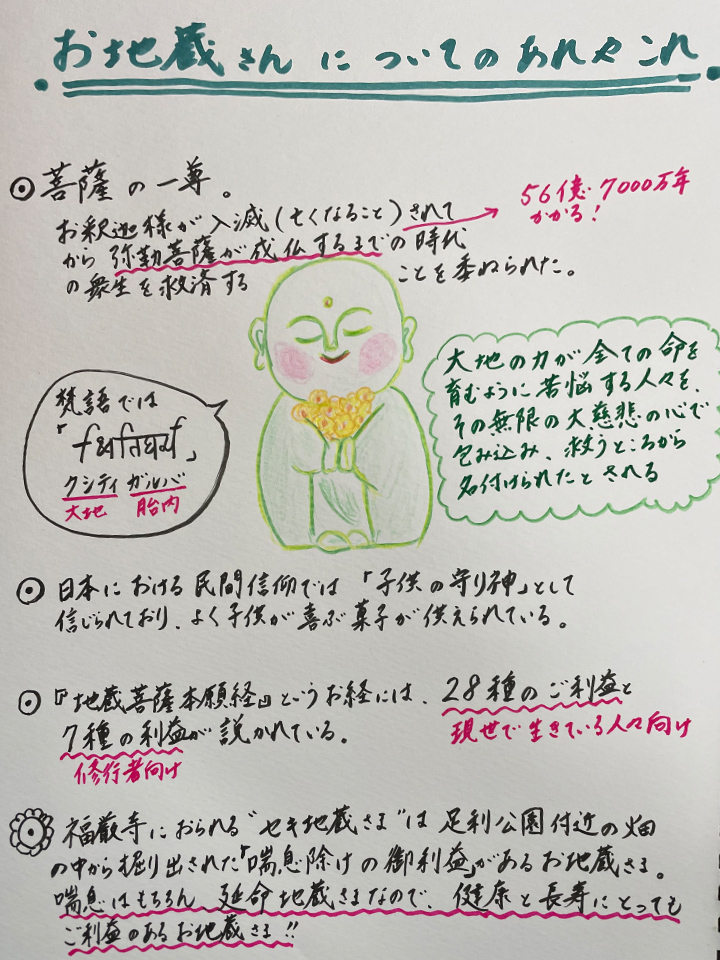 お地蔵さんについてのあれやこれ
菩薩の一尊。
お釈迦様が入滅(亡くなること)されて
から弥勒菩薩が成仏するまでの時代
の衆生を救済することを委ねられた。
56億7000万年
かかる!
梵語では
クシティ ガルバ
大地 胎内
大地の力が全ての命を
育むように苦悩する人々を、
その無限の大慈悲の心で
包み込み、救うところから
名付けられたとされる
日本における民間信仰では「子供の守り神」として
信じられており、よく子供が喜ぶ菓子が供えられている。
『地蔵菩薩本願経』というお経には、28種のご利益と
7種の利益が説かれている。
現世で生きている人々向け
修行者向け
福厳寺におられる"セキ地蔵さま"は足利公園付近の畑
の中から掘り出された「喘息除けの御利益」があるお地蔵さま。
喘息はもちろん延命地蔵さまなので、健康と長寿にとっても
ご利益のあるお地蔵さま!!